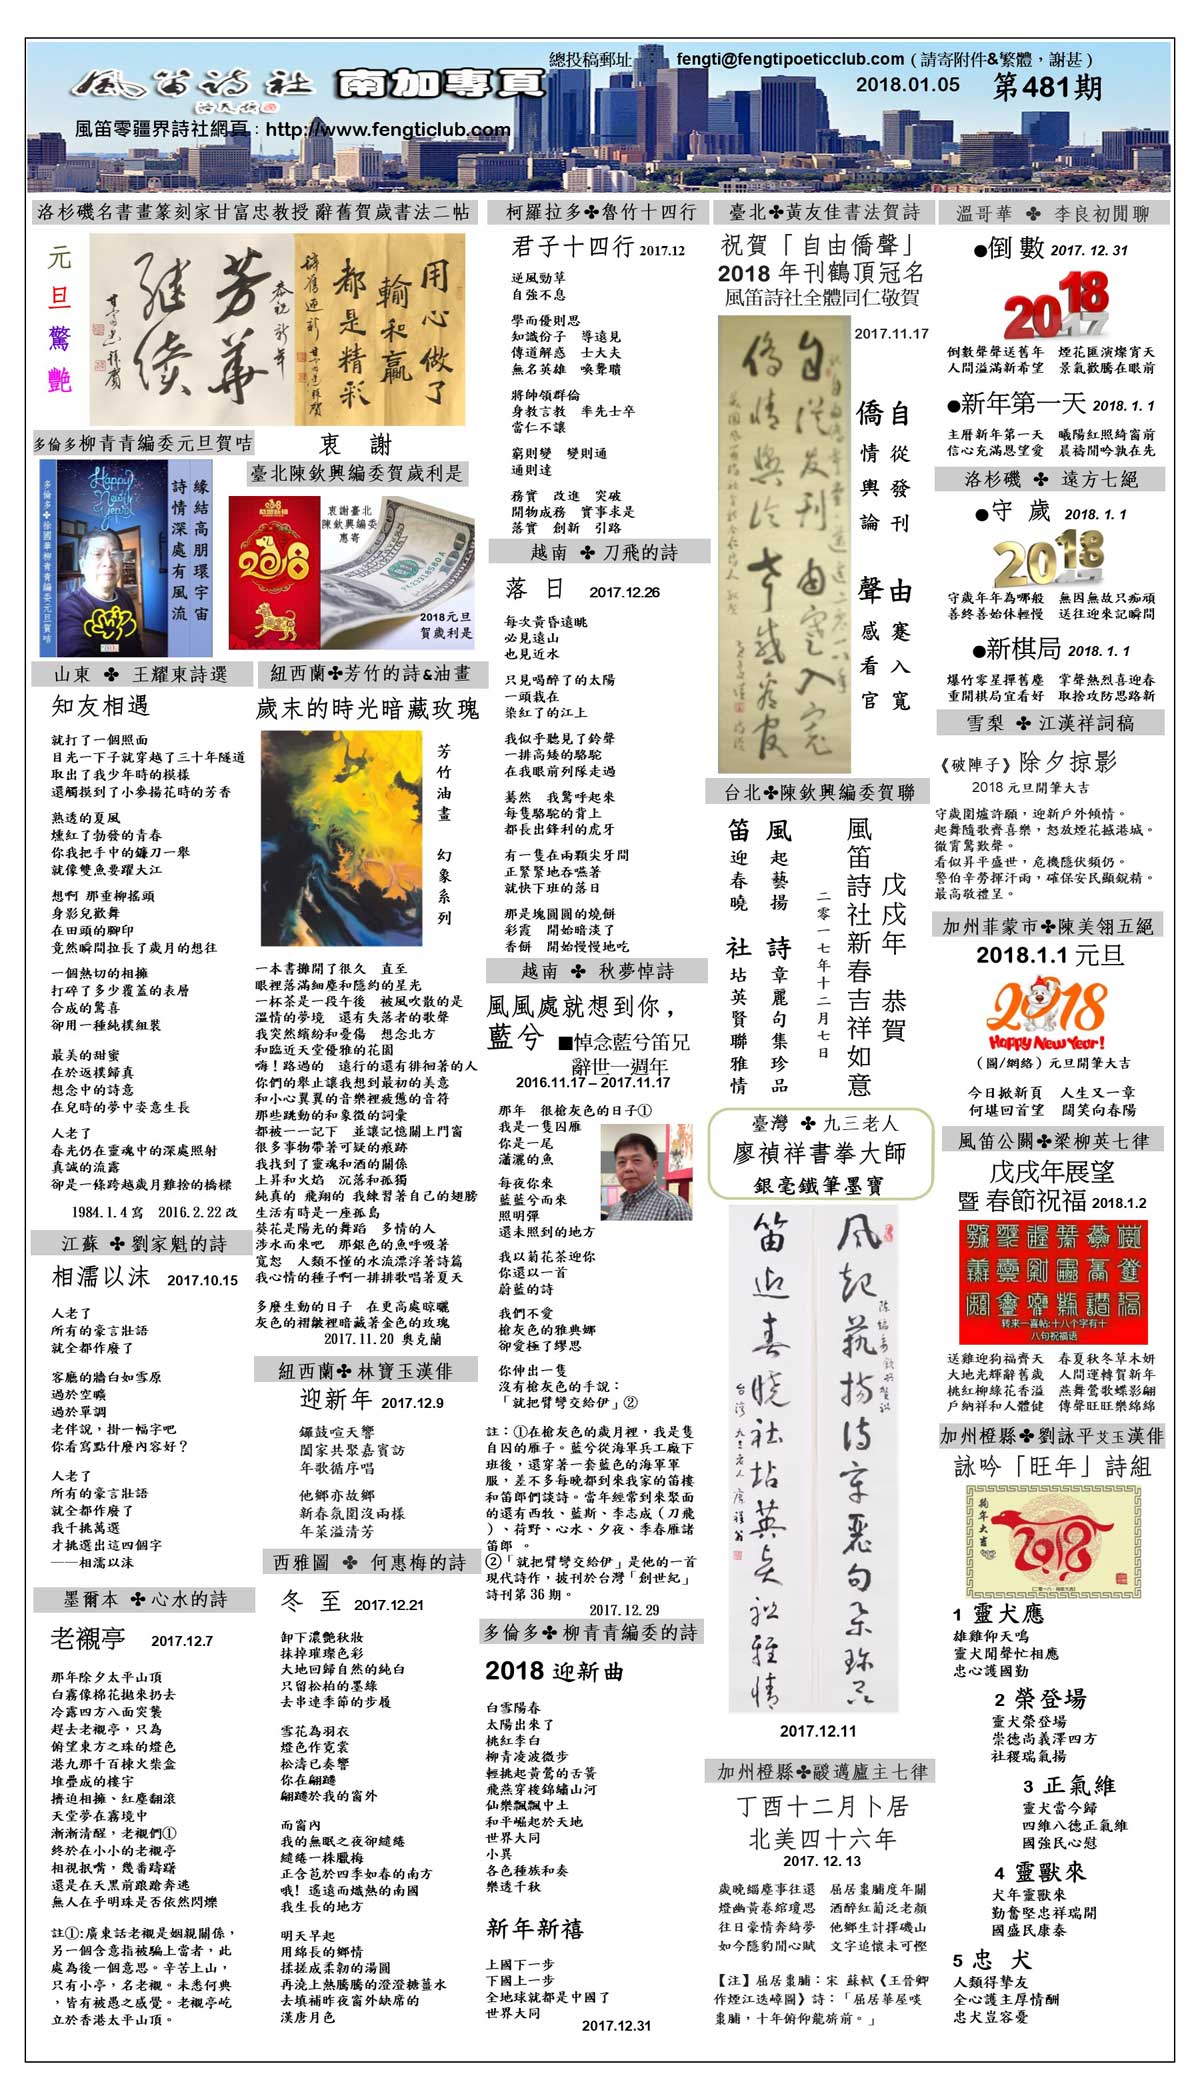 總投稿郵址 ： fengti@fengtipoeticclub.com（請寄附件&繁體，謝甚）
風笛詩社 南加專頁
2018.01.05 第481期
風笛零疆界詩社網頁：http://www.fengticlub.com
洛杉磯名書畫篆刻家甘富忠教授 辭舊賀歲書法二帖
元旦驚艷
芳華
繼續
恭祝新年
用心做了
輸和贏
都是精彩
辭舊迎新
多倫多柳青青編委元旦賀咭
Happy New Year!
緣結高朋環宇宙
詩情深處有風流
多倫多✤徐國華柳青青編委元旦賀咭
衷 謝
臺北陳欽興編委賀歲利是
2018
衷謝臺北
陳欽興編委
惠寄
2018元旦
賀歲利是
山東 ✤ 王耀東詩選
知友相遇
就打了一個照面
目光一下子就穿越了三十年隧道
取出了我少年時的模樣
還觸摸到了小麥揚花時的芳香
熟透的夏風
燻紅了勃發的青春
你我把手中的鐮刀一舉
就像雙魚要躍大江
想啊 那垂柳搖頭
身影兒歡舞
在田頭的腳印
竟然瞬間拉長了歲月的想往
一個熱切的相擁
打碎了多少覆蓋的表層
合成的驚喜
卻用一種純樸組裝
最美的甜蜜
在於返樸歸真
想念中的詩意
在兒時的夢中姿意生長
人老了
春光仍在靈魂中的深處照射
真誠的流露
卻是一條跨越歲月難捨的橋樑
1984.1.4寫 2016.2.22改
江蘇 ✤ 劉家魁的詩
相濡以沫 2017.10.15
人老了
所有的豪言壯語
就全都作廢了
客廳的牆白如雪原
過於空曠
過於單調
老伴說，掛一幅字吧
你看寫點什麼內容好？
人老了
所有的豪言壯語
就全都作廢了
我千挑萬選
才挑選出這四個字
──相濡以沫
墨爾本 ✤心水的詩
老襯亭 2017.12.7
那年除夕太平山頂
白霧像棉花拋來扔去
冷露四方八面突襲
趕去老襯亭，只為
俯望東方之珠的燈色
港九那千百棟火柴盒
堆疊成的樓宇
擠迫相擁、紅塵翻滾
天堂夢在霧境中
漸漸清醒，老襯們①
終於在小小的老襯亭
相視抿嘴，幾番躊躇
還是在天黑前踉蹌奔逃
無人在乎明珠是否依然閃爍
註①:廣東話老襯是姻親關係，
另一個含意指被騙上當者，此
處為後一個意思。辛苦上山，
只有小亭，名老襯。未悉何典
，皆有被愚之感覺。老襯亭屹
立於香港太平山頂。
紐西蘭✤芳竹的詩&油畫
歲末的時光暗藏玫瑰
芳竹油畫 幻象系列
一本書攤開了很久 直至
眼裡落滿細塵和隱約的星光
一杯茶是一段午後 被風吹散的是
溫情的夢境 還有失落者的歌聲
我突然繽紛和憂傷 想念北方
和臨近天堂優雅的花園
嗨！路過的 遠行的還有徘徊著的人
你們的舉止讓我想到最初的美意
和小心翼翼的音樂裡疲憊的音符
那些跳動的和象徵的詞彙
都被一一記下 並讓記憶關上門窗
很多事物帶著可疑的痕跡
我找到了靈魂和酒的關係
上昇和火焰 沉落和孤獨
純真的 飛翔的 我練習著自己的翅膀
生活有時是一座孤島
葵花是陽光的舞蹈 多情的人
涉水而來吧 那銀色的魚呼吸著
寬恕 人類不懂的水流漂浮著詩篇
我心情的種子啊一排排歌唱著夏天
多麼生動的日子 在更高處晾曬
灰色的褶皺裡暗藏著金色的玫瑰
2017.11.20 奧克蘭
紐西蘭✤ 林寶玉漢俳
迎新年 2017.12.9
鑼鼓喧天響
闔家共聚嘉賓訪
年歌循序唱
他鄉亦故鄉
新春氛圍沒兩樣
年菜溢清芳
西雅圖 ✤ 何惠梅的詩
冬 至 2017.12.21
卸下濃艷秋妝
抹掉璀璨色彩
大地回歸自然的純白
只留松柏的墨綠
去串連季節的步履
雪花為羽衣
燈色作霓裳
松濤已奏響
你在翩躚
翩躚於我的窗外
而窗內
我的無眠之夜卻繾綣
繾綣一株臘梅
正含苞於四季如春的南方
哦! 遙遠而熾熱的南國
我生長的地方
明天早起
用綿長的鄉情
揉搓成柔韌的湯圓
再澆上熱騰騰的澄澄糖薑水
去填補昨夜窗外缺席的
漢唐月色
柯羅拉多✤魯竹十四行
君子十四行 2017.12
逆風勁草
自強不息
學而優則思
知識份子 導遠見
傳道解惑 士大夫
無名英雄 喚聾聵
將帥領群倫
身教言教 率先士卒
當仁不讓
窮則變 變則通
通則達
務實 改進 突破
開物成務 實事求是
落實 創新 引路
越南 ✤ 刀飛的詩
落 日 2017.12.26
每次黃昏遠眺
必見遠山
也見近水
只見喝醉了的太陽
一頭栽在
染紅了的江上
我似乎聽見了鈴聲
一排高矮的駱駝
在我眼前列隊走過
驀然 我驚呼起來
每隻駱駝的背上
都長出鋒利的虎牙
有一隻在兩顆尖牙間
正緊緊地吞嚥著
就快下班的落日
那是塊圓圓的燒餅
彩霞 開始暗淡了
香餅 開始慢慢地吃
越南 ✤ 秋夢悼詩
風風處就想到你，
藍兮 ■悼念藍兮笛兄
辭世一週年
2016.11.17 – 2017.11.17
那年 很槍灰色的日子①
我是一隻囚雁
你是一尾
瀟灑的魚
每夜你來
藍藍兮而來
照明彈
還未照到的地方
我以菊花茶迎你
你還以一首
蔚藍的詩
我們不愛
槍灰色的雅典娜
卻愛極了繆思
你伸出一隻
沒有槍灰色的手說：
「就把臂彎交給伊」②
註：①在槍灰色的歲月裡，我是隻
自囚的雁子。藍兮從海軍兵工廠下
班後，還穿著一套藍色的海軍軍
服，差不多每晚都到來我家的笛樓
和笛郎們談詩。當年經常到來聚面
的還有西牧、藍斯、李志成（刀飛
）、荷野、心水、夕夜、季春雁諸
笛郎 。
②「就把臂彎交給伊」是他的一首
現代詩作，披刊於台灣「創世紀」
詩刊第36期。
2017.12.29
多倫多✤柳青青編委的詩
2018 迎新曲
白雪陽春
太陽出來了
桃紅李白
柳青凌波微步
輕挑起黃鶯的舌簧
飛燕穿梭錦繡山河
仙樂飄飄中土
和平崛起於天地
世界大同
小異
各色種族和奏
樂透千秋
新年新禧
上國下一步
下國上一步
全地球就都是中國了
世界大同
2017.12.31
臺北✤黃友佳書法賀詩
祝賀「自由僑聲」
2018 年刊鶴頂冠名
風笛詩社全體同仁敬賀
2017.11.17
自從發刊 由蹇入寬
僑情輿論 聲感看官
台北✤陳欽興編委賀聯
戊戌年 恭賀
風笛詩社新春吉祥如意
風起藝揚 詩章麗句集珍品
笛迎春曉 社坫英賢聯雅情
二零一七年十二月七日
臺灣 ✤ 九三老人
廖禎祥書拳大師
銀毫鐵筆墨寶
風起藝揚詩章麗句集珍品
笛迎春曉社坫英賢聯雅情
2017.12.11
加州橙縣✤酸邁廬主七律
丁酉十二月卜居
北美四十六年
2017. 12. 13
歲晚緇塵事往還 屈居棗脯度年關
燈幽黃卷綰瓊思 酒醉紅葡泛老顏
往日豪情奔綺夢 他鄉生計擇磯山
如今隱豹閒心賦 文字追懷未可慳
【注】屈居棗脯：宋 蘇軾《王晉卿
作煙江迭嶂圖》詩：「屈居華屋啖
棗脯，十年俯仰龍旂前。」
溫哥華 ✤ 李良初閒聊
●倒 數 2017. 12. 31
2018
倒數聲聲送舊年 煙花匯演燦宵天
人間溢滿新希望 景氣歡騰在眼前
●新年第一天 2018. 1. 1
主曆新年第一天 曦陽紅照綺窗前
信心充滿恩望愛 晨禱閒吟孰在先
洛杉磯 ✤ 遠方七絕
●守 歲 2018. 1. 1
2018
守歲年年為哪般 無因無故只痴頑
善終善始休輕慢 送往迎來記瞬間
●新棋局 2018. 1. 1
爆竹零星擇舊塵 掌聲熱烈喜迎春
重開棋局宜看好 取捨攻防思路新
雪梨 ✤ 江漢祥詞稿
《破陣子》除夕掠影
2018 元旦開筆大吉
守歲圍爐許願，迎新戶外傾情。
起舞隨歌齊喜樂，怒放煙花撼港城。
徹霄驚歎聲。
看似昇平盛世，危機隱伏頻仍。
警伯辛勞揮汗雨，確保安民顯銳精。
最高敬禮呈。
加州菲蒙市✤陳美翎五絕
2018.1.1 元旦
2018
Happy New Year!
（圖/網絡）元旦開筆大吉
今日掀新頁 人生又一章
何堪回首望 闊笑向春陽
風笛公關✤梁柳英七律
戊戌年展望
暨 春節祝福 2018.1.2
转来一喜帖:十八个字有十
八句祝福语
送雞迎狗福齊天 春夏秋冬草木妍
大地光輝辭舊歲 人間運轉賀新年
桃紅柳綠花香溢 燕舞鶯歌蝶影翩
戶納祥和人體健 傳聲旺旺樂綿綿
加州橙縣✤劉詠平艾玉漢俳
詠吟「旺年」詩組
狗年大吉
2018
1 靈犬應
雄雞仰天鳴
靈犬聞聲忙相應
忠心護國勤
2 榮登場
靈犬榮登場
崇德尚義澤四方
社稷瑞氣揚
3 正氣維
靈犬當今歸
四維八德正氣維
國強民心慰
4 靈獸來
犬年靈獸來
勤奮堅忠祥瑞開
國盛民康泰
5 忠 犬
人類得摯友
全心護主厚情酬
忠犬豈容憂